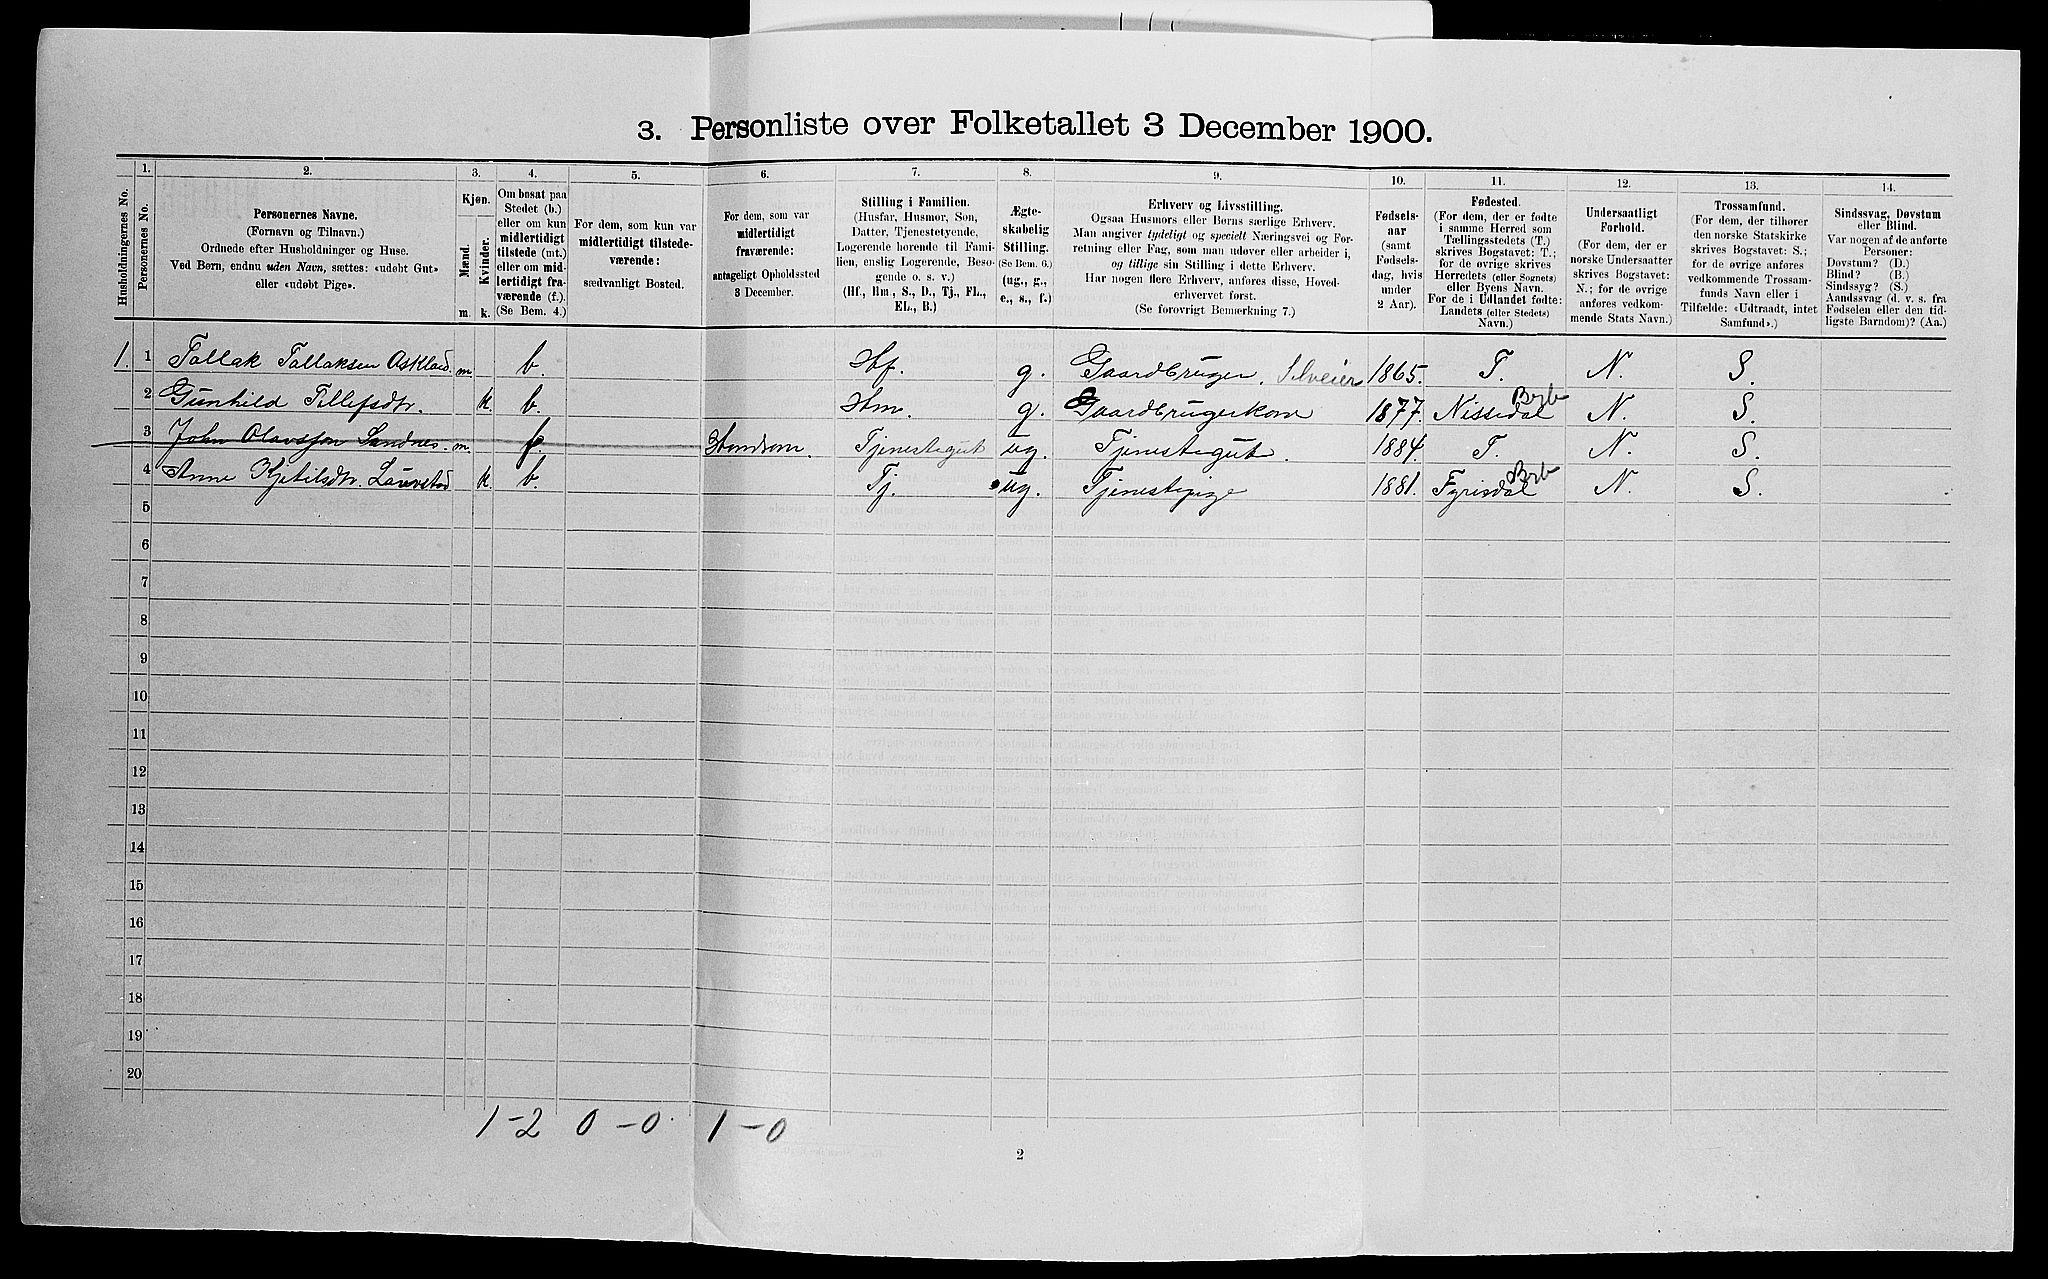 3. Personliste over Folketallet 3 December 1900.
Husholdningernes No.
1.
Personernes No.
2.
Personernes Navne.
(Fornavn og Tilnavn.)
Ordnede efter Husholdninger og Huse.
Ved Børn, endnu uden Navn, sættes: «udøbt Gut»
eller «udøbt Pige».
3.
Kjøn.
Mænd.
Kvinder.
m.
k.
4.
Om bosat paa
Stedet (b.)
eller om kun
midlertidigt
tilstede (mt.)
eller om mid-
lertidigt fra-
værende (f.).
(Se Bem. 4.)
5.
For dem, som kun var
midlertidigt tilstede-
værende:
sædvanligt Bosted.
6.
For dem, som var
midlertidigt
fraværende:
antageligt Opholdssted
3 December.
7.
Stilling i Familien.
(Husfar, Husmor, Søn,
Datter, Tjenestetyende,
Logerende hørende til Fami-
lien, enslig Logerende, Besø-
gende o. s. v.)
(Hf., Hm., S., D., Tj., FL.,
EL., B.)
8.
Ægte-
skabelig
Stilling.
(Se Bem. 6.)
(ug., g.,
e., s., f.)
9.
Erhverv og Livsstilling.
Ogsaa Husmors eller Børns særlige Erhverv.
Man angiver tydeligt og specielt Næringsvei og For-
retning eller Fag, som man udøver eller arbeider i,
og tillige sin Stilling i dette Erhverv.
Har nogen flere Erhverv, anføres disse, Hoved-
erhvervet først.
(Se forøvrigt Bemærkning 7.)
10.
Fødsels-
aar
(samt
Fødsels-
dag, hvis
under
2 Aar).
11.
Fødested.
(For dem, der er fødte
i samme Herred som
Tællingsstedets (T.)
skrives Bogstavet: T.;
for de øvrige skrives
Herredets (eller Sognets)
eller Byens Navn.
For de i Udlandet fødte:
Landets (eller Stedets)
Navn.)
12.
Undersaatligt
Forhold.
(For dem, der er
norske Undersaatter
skrives Bogstavet:
N.; for de øvrige
anføres vedkom-
mende Stats Navn.)
13.
Trossamfund.
(For dem, der tilhører
den norske Statskirke
skrives Bogstavet: S.;
for de øvrige anføres
vedkommende Trossam-
funds Navn eller i
Tilfælde: «Udtraadt, intet
Samfund».)
14.
Sindssvag, Døvstum
eller Blind.
Var nogen af de anførte
Personer:
Døvstum? (D.)
Blind? (B.)
Sindssyg? (S.)
Aandssvag (d. v. s. fra
Fødselen eller den tid-
ligste Barndom)? (Aa.)
1. 1 Tallak Tallaksen Askland. m. b. Hf. g. Gaardbruger. Selveier 1865. T. N. S.
2 Gunhild Tellefsdtr. k. b. Hm. g. Gaardbrugerkone 1877. Nissedal Brb N. S.
3 John Olavssøn Sandnes. m. f. Tjenestegut ug. Tjenestegut. 1884. T. N. S.
4 Anne Kjetilsdtr. k. b. Tj. ug. Tjenestepige 1881. Fyrisdal Brb N. S.
5
6
7
8
9
10
11
12
13
14
15
16
17
18
19
20
1-2 0-0. 1-0
2